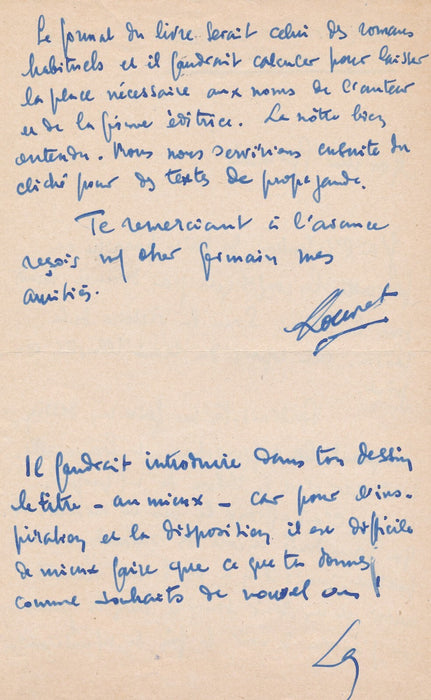 Le format du livre serait celui des romans
habituels et il faudrait calculer pour laisser
la place nécessaire aux noms de l'auteur
et de la firme éditrice. La nôtre bien
entendu. Nous nous servirions ensuite du
cliché pour des textes de propagande.
Te remerciant à l'avance
reçois mon cher Germain mes
amitiés.
Il faudrait introduire dans ton dessin
le titre - au mieux - car pour l'ins-
piration et la disposition il est difficile
de mieux faire que ce que tu donnes
comme souhaits de nouvel an !